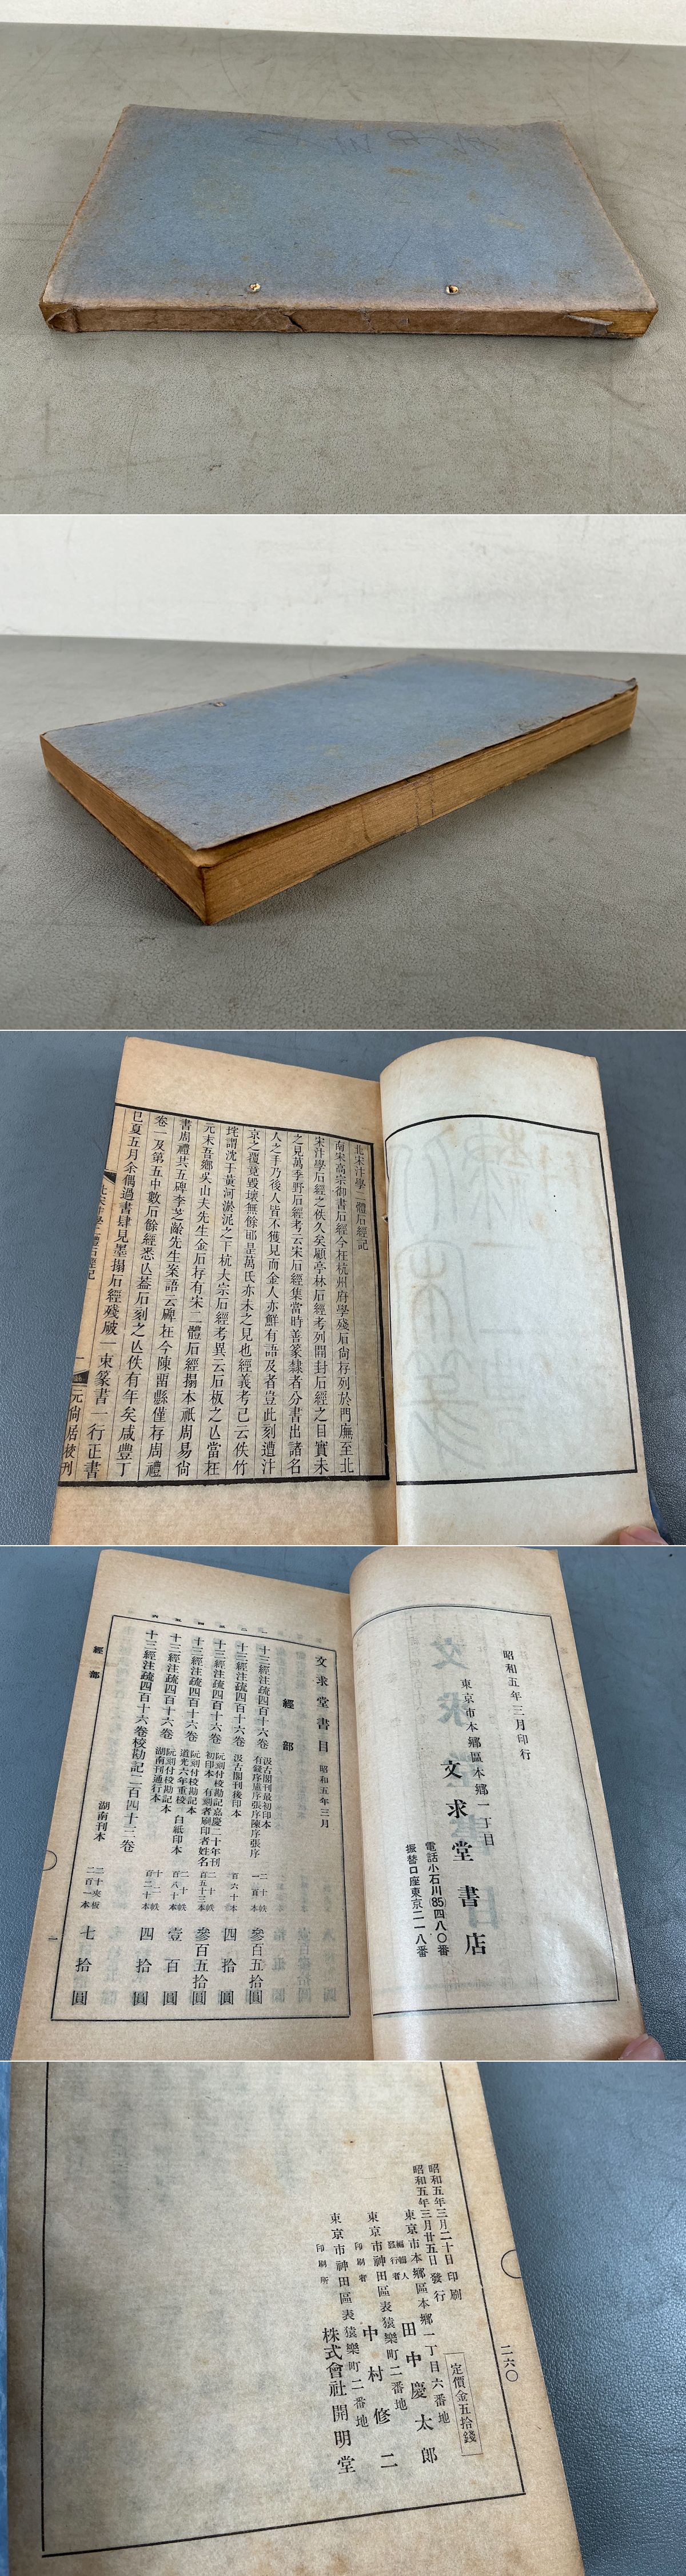 北宋汴學二體石經記
南宋高宗御書石經今在杭州府學殘石尙存列於門廡至北
宋汴學石經之佚久矣顧亭林石經考列開封石經之目實未
之見萬季野石經考云宋石經集當時善篆隸者分書出諸名
人之手乃後人皆不獲見而金人亦鮮有語及者豈此刻遭汴
京之覆竟毀壞無餘耶是萬氏亦未之見也經義考已云佚竹
垞謂沈于黃河淤泥之下杭大宗石經考異云石板之亾當在
元末吾鄉吳山夫先生金石存有宋二體石經搨本祇周易尙
書周禮共五碑李芝齡先生案語云碑在今陳畱縣僅存周禮
卷一及第五中數石餘經悉亾葢石刻之亾佚有年矣咸豐丁
巳夏五月余偶過書肆見墨搨石經殘破一束篆書一行正書
北宋汴學二體石經記
一
元尙居校刊
昭和五年三月印行
東京市本鄉區本鄉一丁目
文求堂書店
電話小石川(85)四八〇番
振替口座東京二一八番
文求堂書目 昭和五年三月
經部
十三經注疏四百十六卷 汲古閣刊最初印本 有錢序盧序張序陳序張序 二十帙 一百本 參百五拾圓
十三經注疏四百十六卷 汲古閣刊後印本 百六十本 四拾圓
十三經注疏四百十六卷 阮刻付校勘記嘉慶二十年刊 初印本 有剜者刷印者姓名 二十帙 百五十三本 參百五拾圓
十三經注疏四百十六卷 阮刻付校勘記本 道光六年重校 白紙印本 二十帙 百八十本 壹百圓
十三經注疏四百十六卷 阮刻付校勘記本 湖南刊通行本 十二帙 百二十本 四拾圓
十三經注疏四百十六卷校勘記二百四十三卷 湖南刊本 二十夾板 二百一本 七拾圓
經部
一
二六〇
定價金五拾錢
昭和五年三月二十日印刷
昭和五年三月廿五日發行
東京市本鄉區本鄉一丁目六番地
編輯人 發行者 田中慶太郎
東京市神田區表猿樂町二番地
印刷者 中村修二
東京市神田區表猿樂町二番地
印刷所 株式會社開明堂